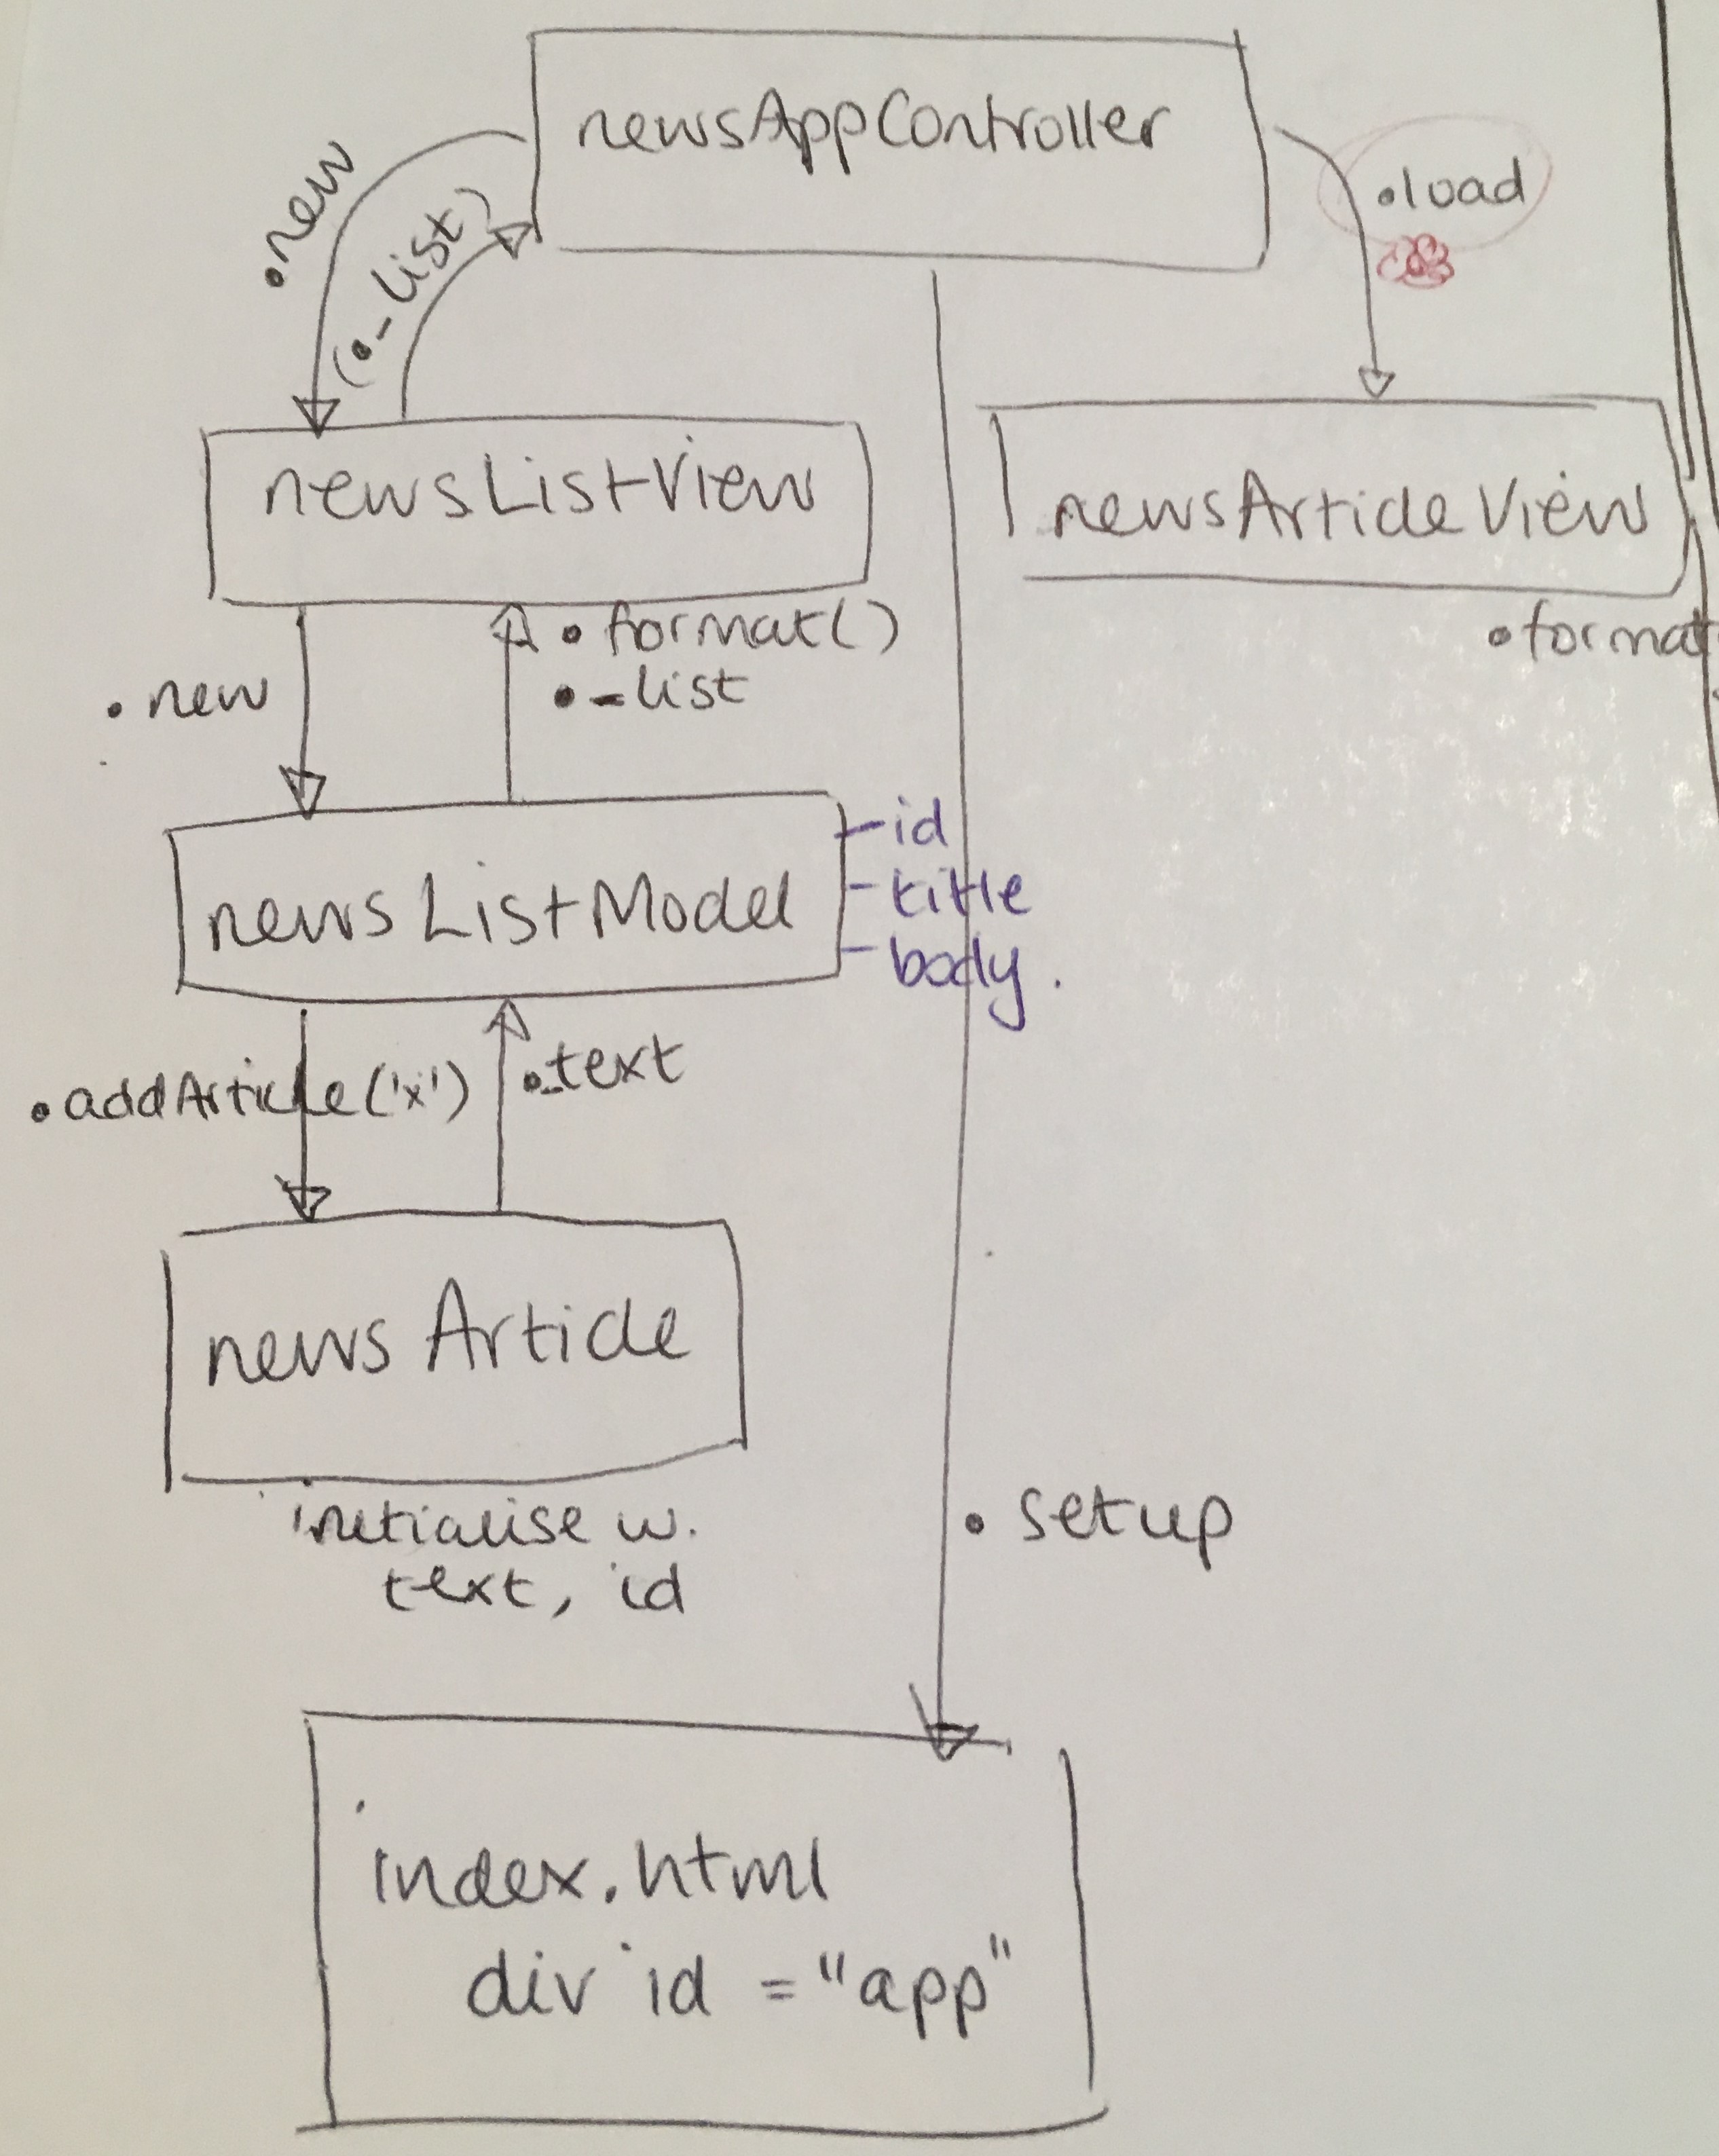 newsAppController
.new
(._list)
.load
newsListView
newsArticleView
.format()
._list
.format
.new
newsListModel
-id
-title
-body.
.addArticle('x')
._text
news Article
initialise w.
text, id
.setup
index.html
div id = "app"